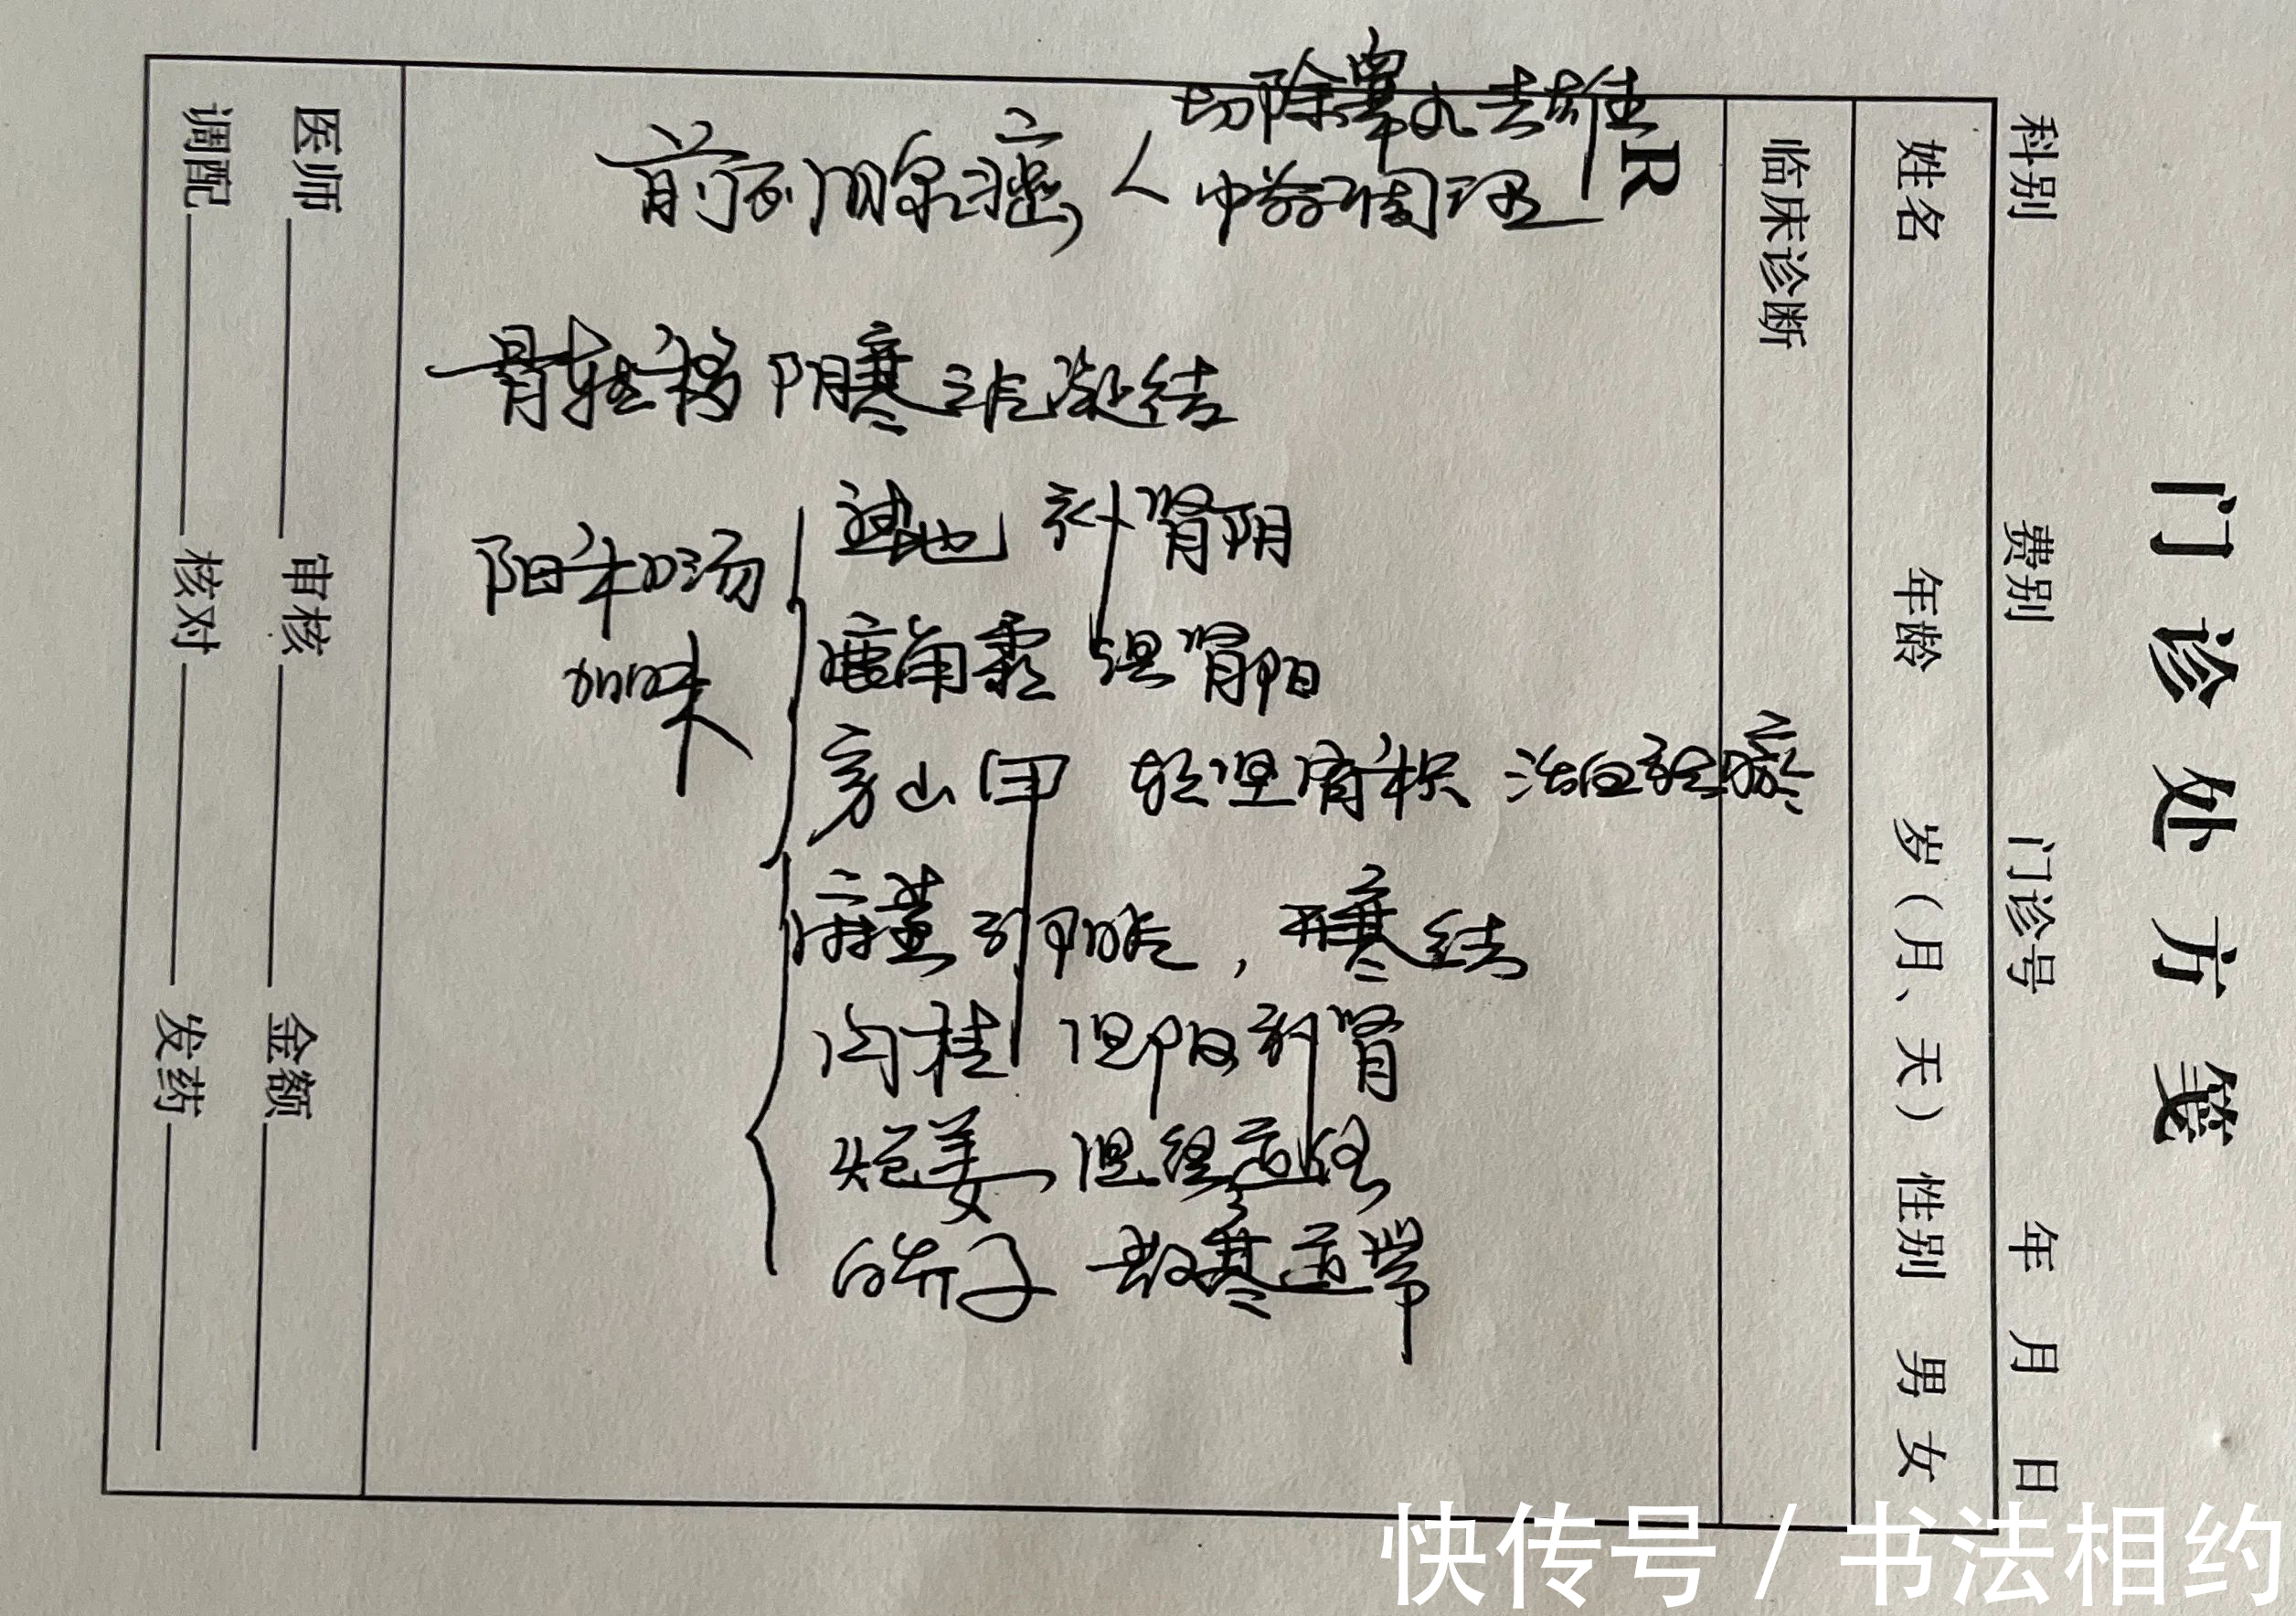 门诊处方笺
科别 费别 门诊号 年 月 日
姓名 年龄 岁（月、天） 性别 男 女
临床诊断
R
切除睾丸去雄
前列腺癌 中药调理
骨转移 阴寒之气凝结
阳和汤
加味
熟地 补肾阴
鹿角霜 温肾阳
穿山甲 软坚消积
麻黄 引阳气，开寒结
肉桂 温阳补肾
炮姜 温经通络
白芥子 散寒通滞
医师 审核 金额
调配 核对 发药
快传号 / 书法相约